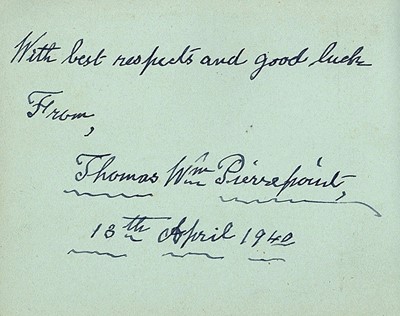 With best respects and good luck
From,
Thomas Wm Pierrepoint,
13th April 1940